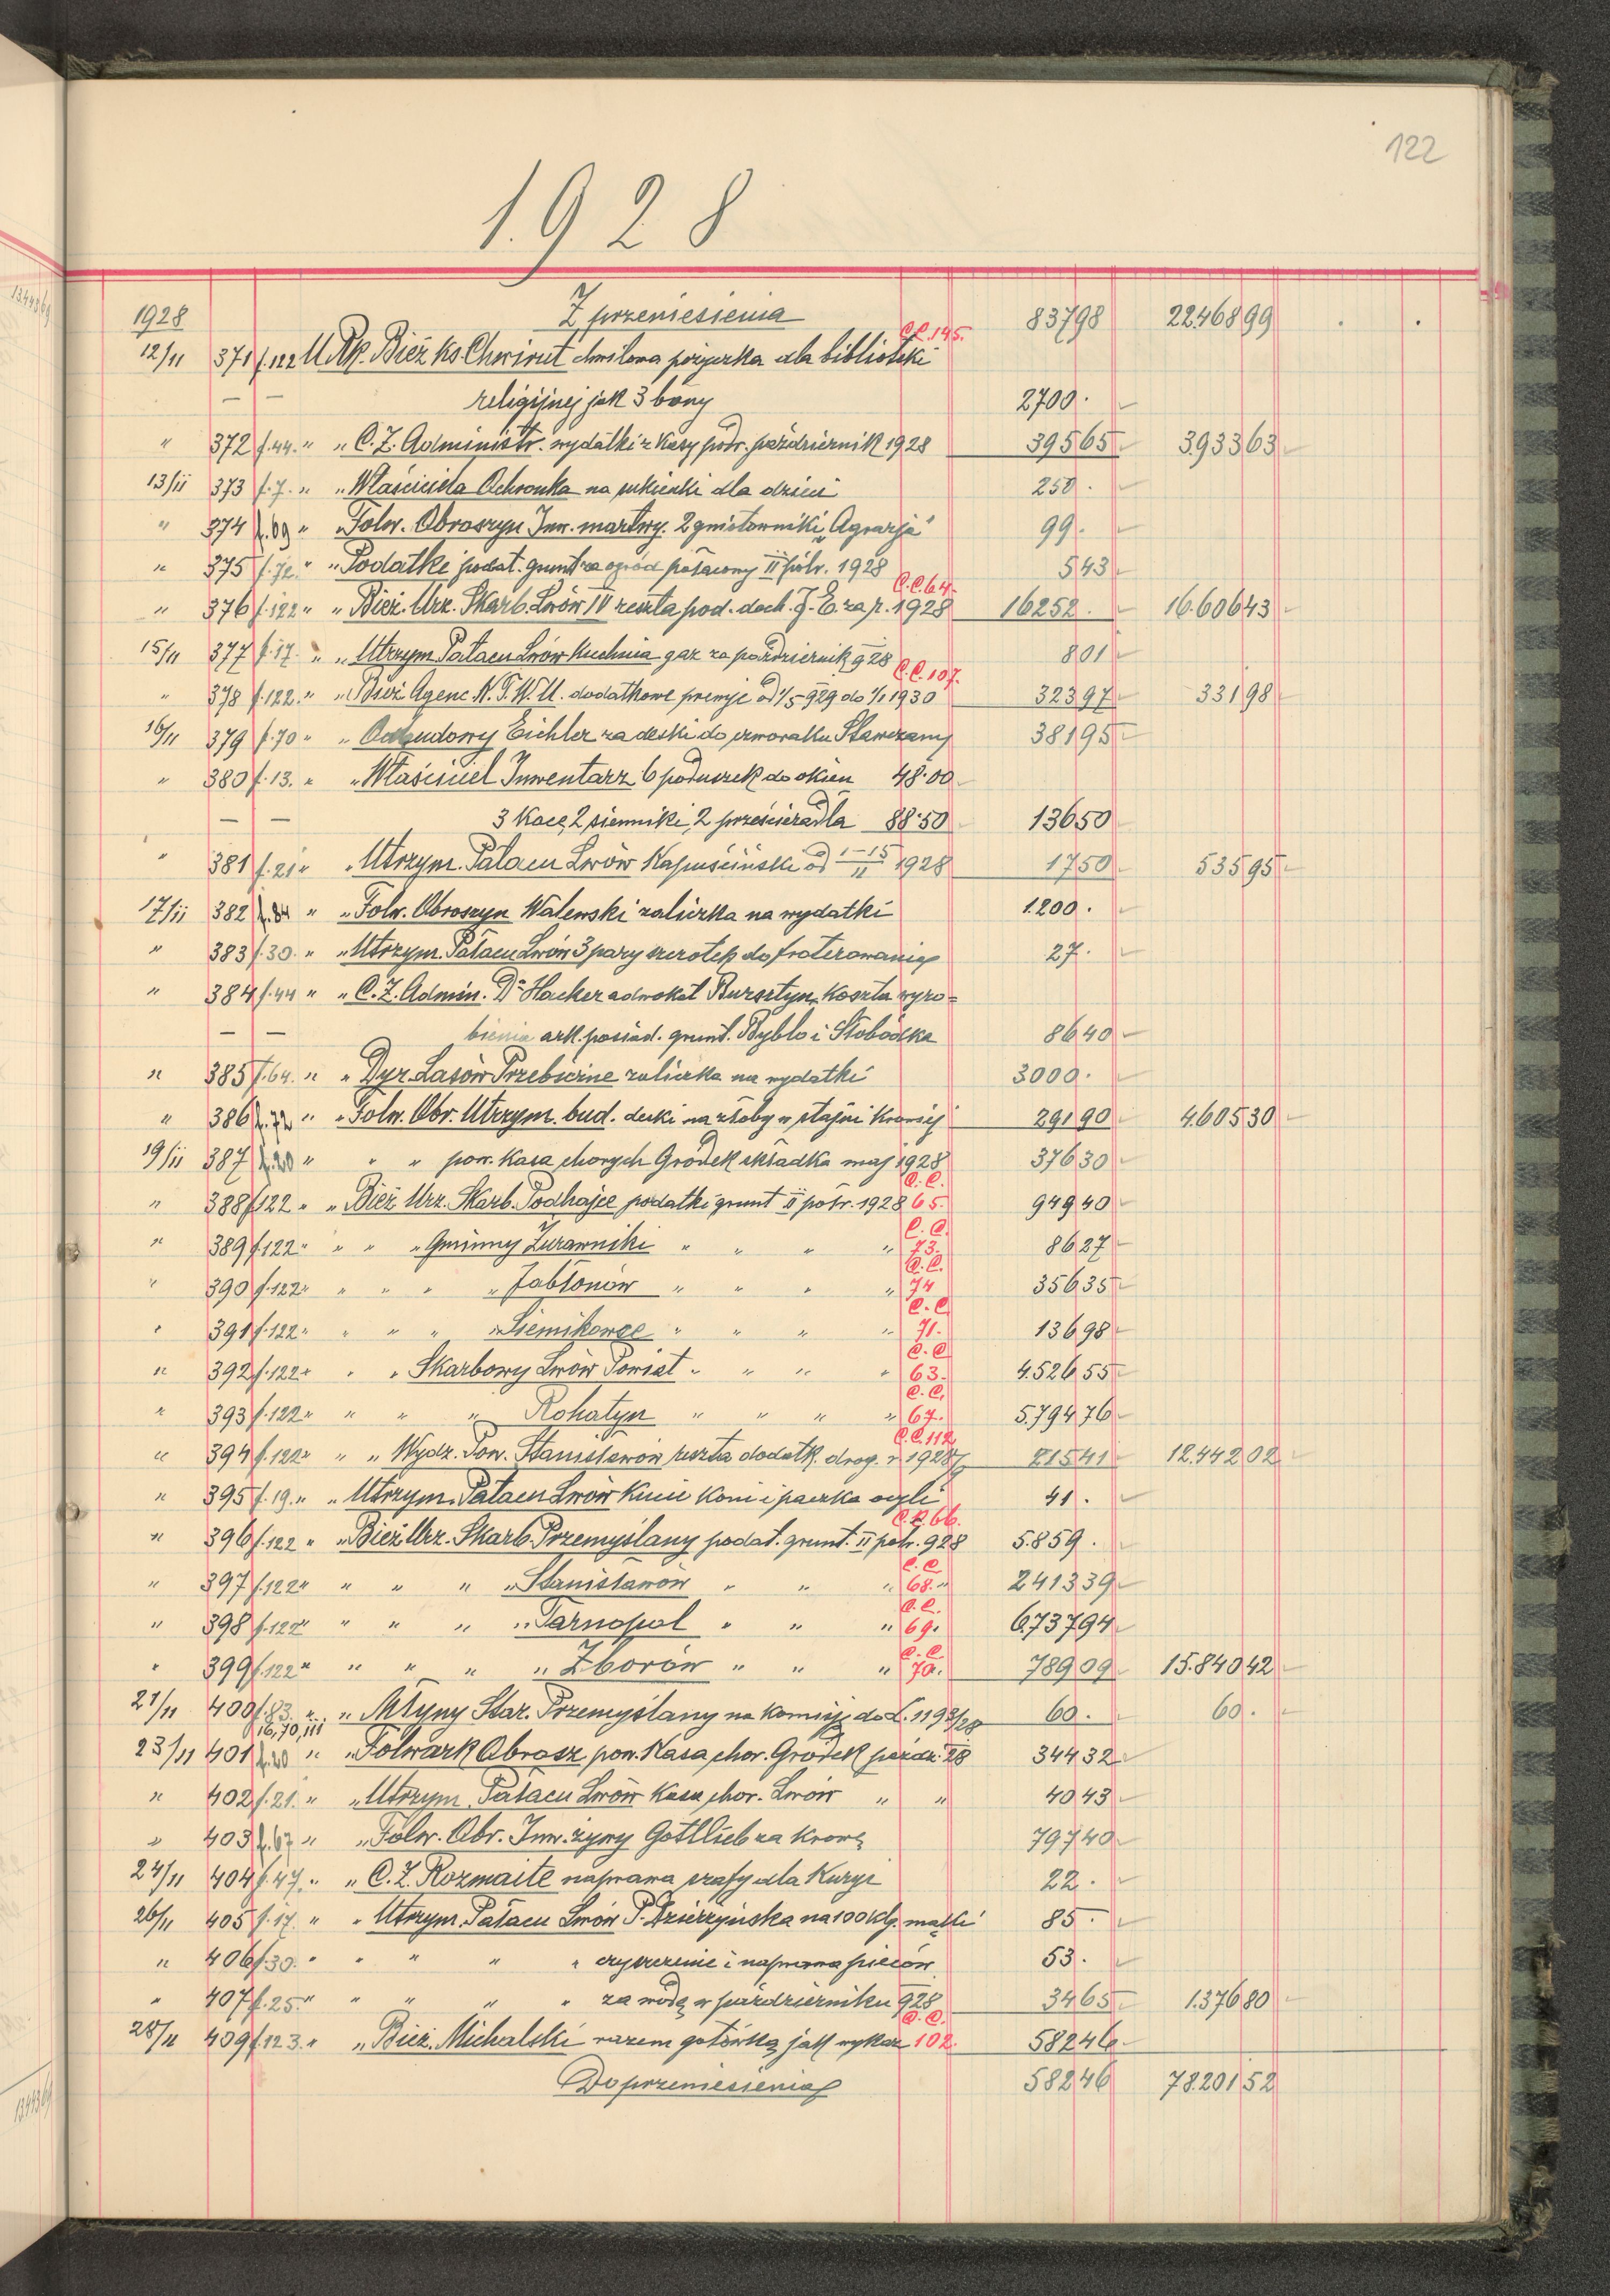 122
1928
1928 Z przeniesienia 837 98 22.468 99
C.C. 145.
12/11 371 f.122 U Rp. Bież ks. Chwirut chwilowa pożyczka dla biblioteki
— — religijnej jak 3 bony 2700 .
" 372 f.44. " " C.Z. Administr. wydatki z kasy podr. październik 1928 395 65 3.933 63
13/ii 373 f.7. " " Właściciela Ochronka na sukienki dla dzieci 250 .
" 374 f.69 " " Folw. Obroszyn Inw. martwy. 2 gniotowniki "Agrarja" 99 .
" 375 f.72. " " Podatki podat. grunt. za ogród pałacowy II półr. 1928 5 43
C.C. 64.
" 376 f.122 " " Bież. Urz. Skarb. Lwów IV reszta pod. doch. J.E. za r. 1928 16252 . 16.606 43
15/11 377 f.17. " " Utrzym. Pałacu Lwów Kuchnia gaz za październik 928 8 01
C.C. 107.
" 378 f.122. " " Bież Agenc N.T.W.U. dodatkowe premje od 1/5 929 do 1/1 1930 323 97 331 98
16/11 379 f.70 " " Odbudowy Eichler za deski do czworaku Stawczany 381 95
" 380 f.13. " " Właściciel Inwentarz 6 poduszek do okien 48.00
— — 3 Koce, 2 sienniki, 2 prześcieradła 88.50 136 50
" 381 f.21 " " Utrzym. Pałacu Lwów Kapuściński od 1-15/II 1928 17 50 535 95
17/ii 382 f.84 " " Folw. Obroszyn Walewski zaliczka na wydatki 1.200 .
" 383 f.30. " " Utrzym. Pałacu Lwów 3 pary szczotek do froterowania 27 .
" 384 f.44 " " C.Z. Admin. Dr Hacker adwokat Bursztyn, Koszta wyro=
— — bienia ark. posiad. grunt. Byblo i Słobódka 86 40
" 385 f.64. " " Dyr. Lasów Przebieżne zaliczka na wydatki 3000 .
" 386 f.72 " " Folw. Obr. Utrzym. bud. deski na żłoby w stajni krowiej 291 90 4.605 30
19/ii 387 f.20 " " " pow. Kasa chorych Gródek składka maj 1928 376 30
C.C.
" 388 f.122 " " Bież Urz. Skarb. Podhajce podatki grunt II półr. 1928 65. 949 40
C.C.
" 389 f.122 " " " " Gminny Żurawniki " " " " 73. 86 27
C.C.
" 390 f.122 " " " " " Jabłonów " " " " 74 356 35
C.C.
" 391 f.122 " " " " " Siemikowce " " " " 71. 136 98
C.C.
" 392 f.122 " " " Skarbowy Lwów Powiat " " " " 63. 4.526 55
C.C.
" 393 f.122 " " " " Rohatyn " " " " 67. 5.794 76
C.C. 112
" 394 f.122 " " " Wydz. Pow. Stanisławów reszta dodatk. drog. z 1928/9 215 41 12.442 02
" 395 f.19. " " Utrzym. Pałacu Lwów Kucie koni i paczka ocyli 41 .
C.C. 66.
" 396 f.122 " " Bież Urz. Skarb. Przemyślany podat. grunt. II półr. 928 5.859 .
C.C.
" 397 f.122 " " " " " Stanisławów " " " 68. " 2413 39
C.C.
" 398 f.122 " " " " " Tarnopol " " " 69. 6.737 94
C.C.
" 399 f.122 " " " " " Zborów " " " 70. 789 09 15.840 42
21/11 400 f.83. " " Młyny Star. Przemyślany na komisję do L. 1193/28 60 . 60 .
16,70,111
23/11 401 f.20 " " Folwark Obrosz. pow. Kasa chor. Gródek paźdz. 28 344 32
" 402 f.21. " " Utrzym. Pałacu Lwów Kasa chor. Lwów " " 40 43
" 403 f.67 " " Folw. Obr. Inw. żywy Gottlieb za krowę 797 40
24/11 404 f.47. " " C.Z. Rozmaite naprawa szafy dla Kurji 22 .
26/11 405 f.17. " " Utrzym. Pałacu Lwów P. Dzierżyńska na 100 klg. mąki 85 .
" 406 f.30. " " " " " czyszczenie i naprawa pieców 53 .
" 407 f.25. " " " " " za wodę w październiku 928 34 65 1.376 80
C.C.
28/11 409 f.123. " " Bież. Michalski razem gotówką jak wykaz 102. 582 46
Do przeniesienia 582 46 78.201 52